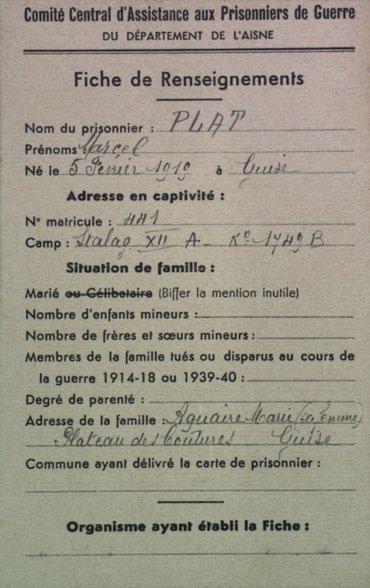 Comité Central d'Assistance aux Prisonniers de Guerre
DU DÉPARTEMENT DE L'AISNE
Fiche de Renseignements
Nom du prisonnier : PLAT
Prénoms Marcel
Né le 5 Février 1919 à Guise
Adresse en captivité :
N° matricule : 441
Camp : Stalag XII A - Ko 1749 B
Situation de famille :
Marié ou Célibataire (Biffer la mention inutile)
Nombre d'enfants mineurs :
Nombre de frères et sœurs mineurs :
Membres de la famille tués ou disparus au cours de
la guerre 1914-18 ou 1939-40 :
Degré de parenté :
Adresse de la famille : Aguaire Marie (sa femme)
Plateau des Coutures Guise
Commune ayant délivré la carte de prisonnier :
Organisme ayant établi la Fiche :